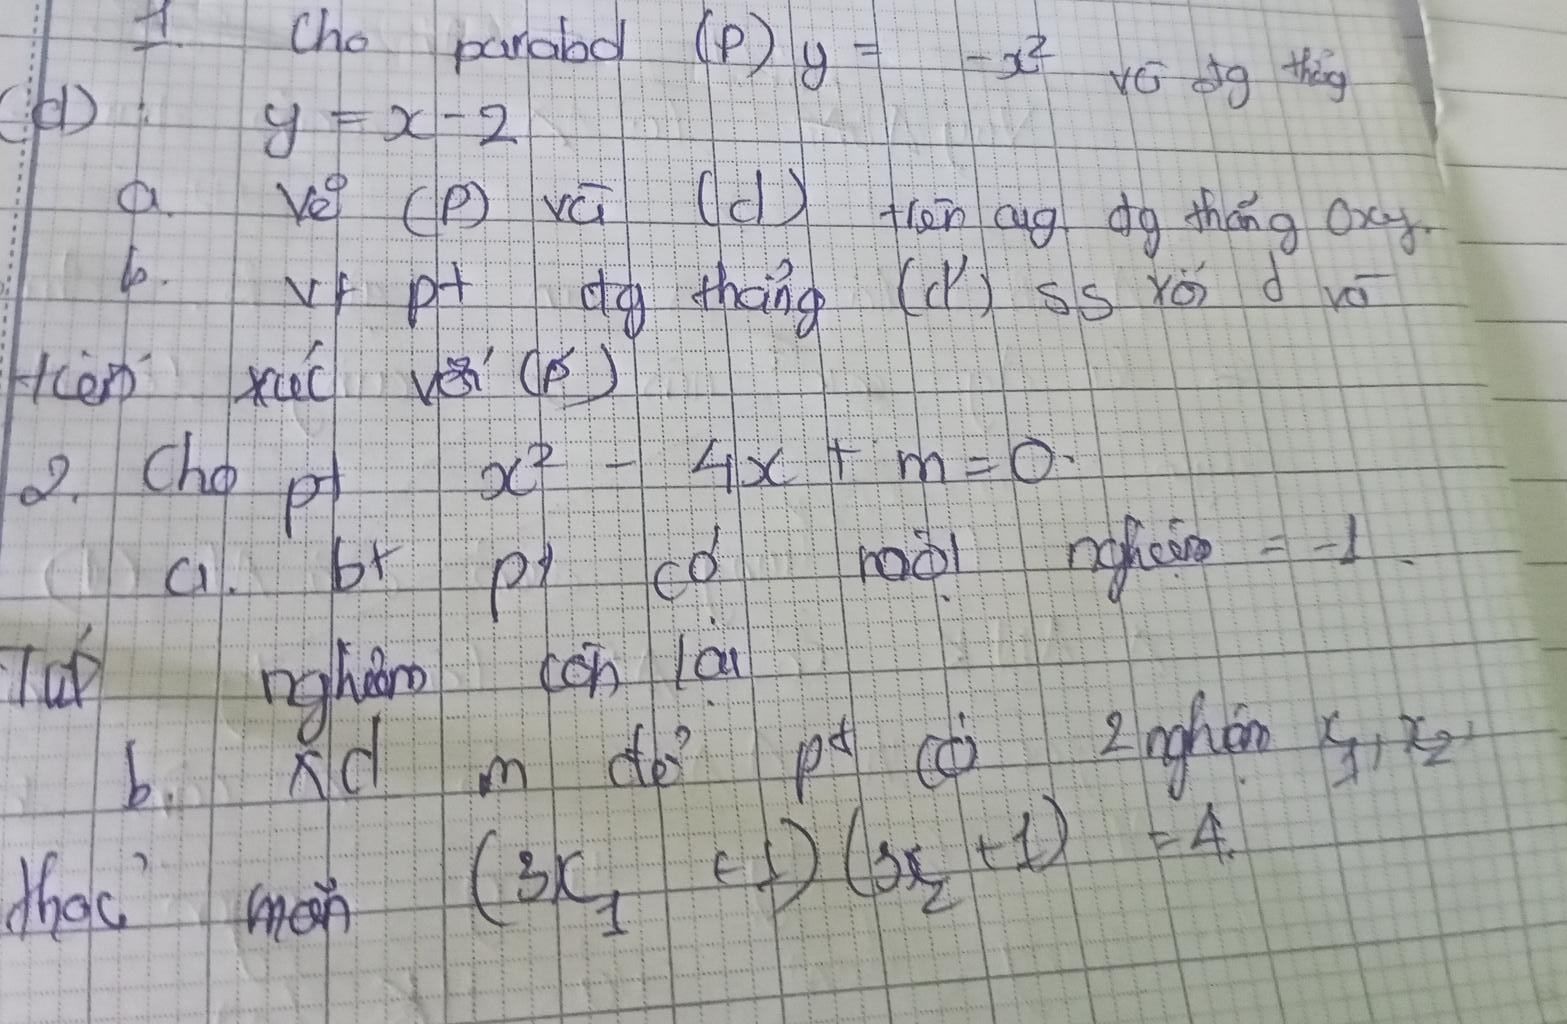 1. Cho parabol (P) y = -x² và đg thẳg
(d): y = x - 2
a. Vẽ (P) và (d) trên cùg đg thẳng Oxy.
b. Vt pt đg thẳng (d') ss với d và
tiếp xúc với (P)
2. Cho pt x² - 4x + m = 0.
a. bt pt có một nghiệm = -1.
Tìm nghiệm còn lại
b. Xđ m để pt có 2 nghiệm x₁, x₂
thỏa mãn (3x₁ + 1)(3x₂ + 1) = 4.